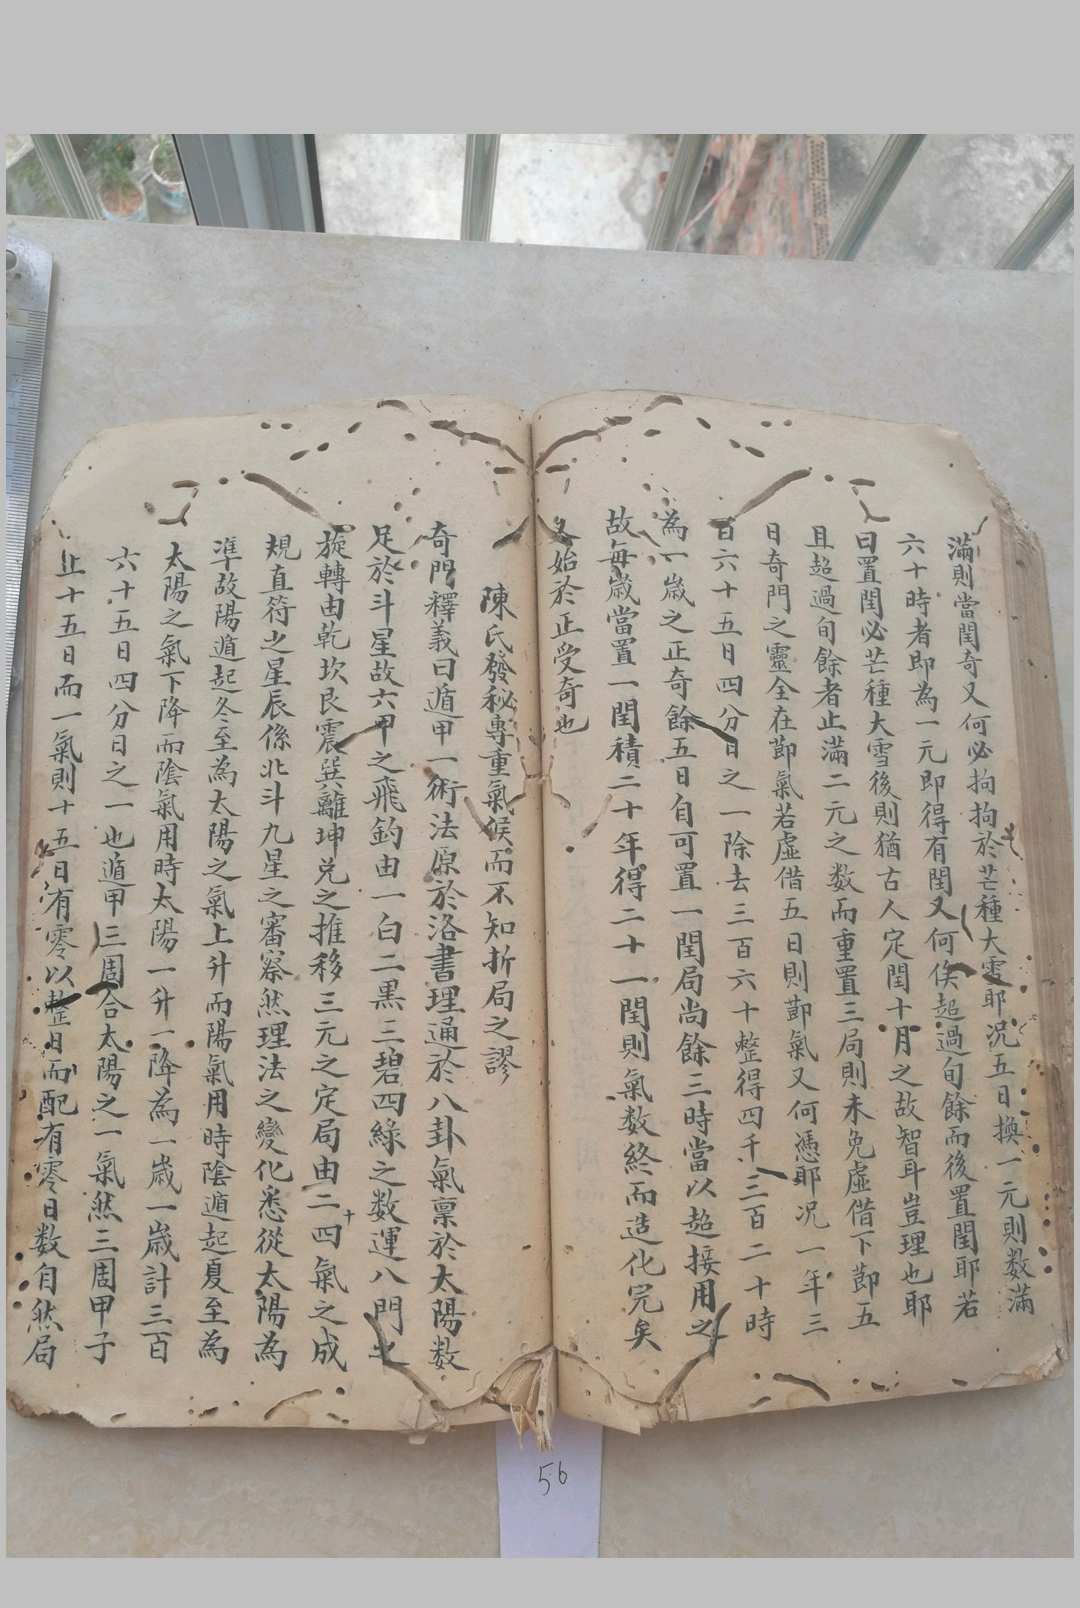 滿則當閏奇又何必拘拘於芒種大雪耶况五日換一元則数滿
六十時者即為一元即得有閏又何俟超過旬餘而後置閏耶若
曰置閏必芒種大雪後則猶古人定閏十月之故智耳豈理也耶
且超過旬餘者止滿二元之数而重置三局則未免虛借下節五
日奇門之靈全在節氣若虛借五日則節氣又何憑耶况一年三
百六十五日四分日之一除去三百六十整得四千三百二十時
為一歲之正奇餘五日自可置一閏局尚餘三時當以超接用之
故每歲當置一閏積二十年得二十一閏則氣数終而造化完矣
又始於正受奇也
陳氏發秘專重氣候而不知折局之謬
奇門釋義曰遁甲一術法原於洛書理通於八卦氣禀於太陽数
足於斗星故六甲之飛鈞由一白二黑三碧四綠之数運八門之
旋轉由乾坎艮震巽離坤兌之推移三元之定局由二十四氣之成
規直符之星辰係北斗九星之審察然理法之變化悉從太陽為
準故陽遁起冬至為太陽之氣上升而陽氣用時陰遁起夏至為
太陽之氣下降而陰氣用時太陽一升一降為一歲一歲計三百
六十五日四分日之一也遁甲三周合太陽之一氣然三周甲子
止十五日而一氣則十五日有零以整日而配有零日数自然局
56